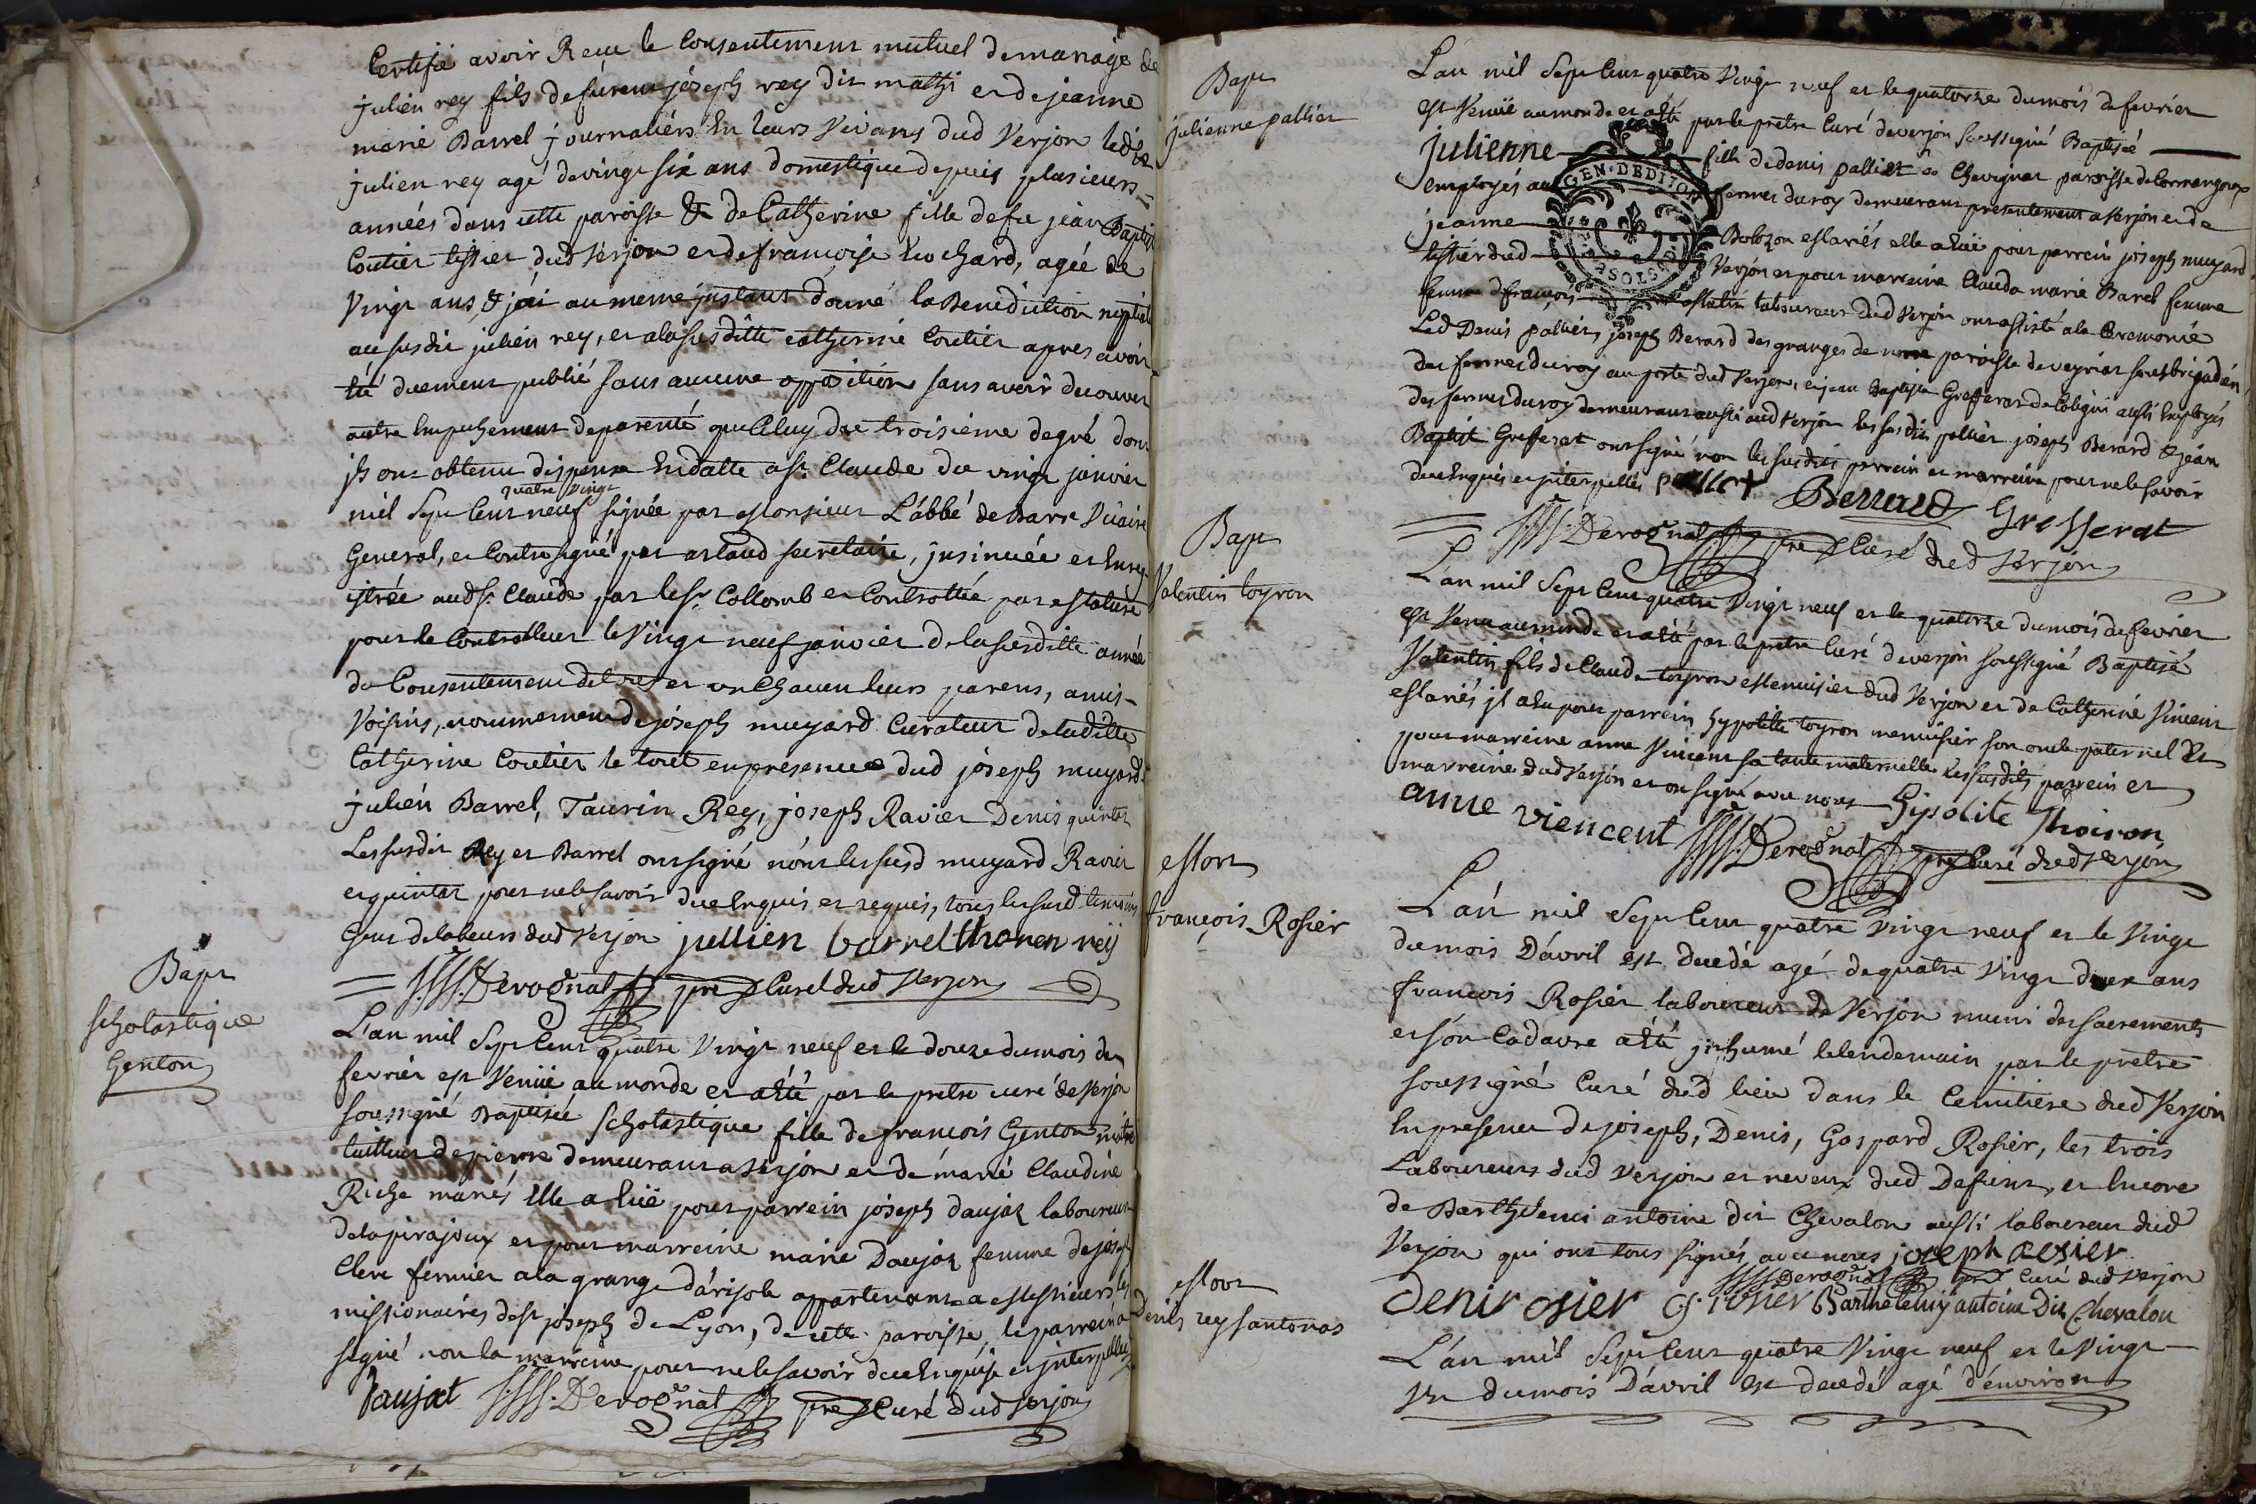 Certifie avoir Recu le Consentement mutuel de mariage de
julien rey fils de furent jóseph rey dit mathi et de jeanne
marie Barrel journaliers En leurs Vivans dud Verjon ledit
julien rey agé de vingt six ans domestique depuis plusieurs
années dans cette paroisse & de Catherine fille de fu jean Baptiste
Coutier tissier dud Verjon et de francoise hochard, agée de
Vingt ans, & jái au meme justant donné la Benediction nuptiale
au susdit julien rey, et a la susditte catherine Coutier apres avoir
été duement publié sans aucune opposition sans avoir decouvert
autre Empechement de parenté que Celuy du troisieme degré dont
jls ont obtenu dispense En datte a st Claude du vingt janvier
quatre Vingt
mil Sept Cent neuf signée par Monsieur L'abbé de Barre Vicaire
General, et Contresigné par artaud secretaire, jnsinuée et Enreg-
istrée aud st Claude par le sr Collomb et Controllée par
pour le Controlleur le Vingt neuf janvier de la susditte année
du Consentement de leurs parens, amis-
Voisins, nommement de jóseph muyard Curateur de laditte
Catherine Coutier le tout en presence dud jóseph muyard
julién Barrel, Taurin Rey, jóseph Ravier Denis quintat
Les susdit Rey et Barrel ont signé nón les susd muyard Ravier
et quintat pour ne le savoir de ce Enquis et requis, tous les susd temoins
Gens de labeurs dud Verjon jullien barrel thoren reÿ
Derognat ptre Curé dud Verjon
Bapt
Scholastique
Genton
L'an mil Sept Cent quatre Vingt neuf et le douze du mois de
fevrier est Venüe au monde et a été par le pretre curé de Verjon
soussigné Baptisée Scholastique fille de francois Genton
tailleur de pierre demeurant a Verjón et de marie Claudine
Riche mariés Elle a Eüe pour parrein jóseph daujat laboureur
de la pirajoux et pour marreine marie Daujat femme de joseph
Clerc fermier a la grange dárisole appartenant a Messieurs les
missionaires de st jóseph de Lyon, de cette paroisse, le parrein a
signé non la marreine pour ne le savoir de ce Enquise et jnterpellée
Daujat Derognat ptre Curé dud Verjon
Bapt
julienne pallier
L'an mil Sept Cent quatre Vingt neuf et le quatorze du mois de fevrier
est Venüe au monde et a été par le prêtre Curé de verjon soussigné Baptisée
julienne fille de denis palliet de Chavignat paroisse de Cormangoux
employés au fermes du roy demeurant presentement a Verjon et de
jeanne Bolozon Mariés elle a Eüe pour parrein jóseph muyard
tissier dud Verjon et pour marreine Clauda marie Barel femme
femme de francois laboureur dud Verjon ont assisté a la Ceremonie
Led Denis palliet, jóseph Berard des granges de nom paroisse de veyriat sousbrigadier
des fermes du roy au poste dud Verjon, et jean Baptiste Grefferat de Coligni aussi Employés
des fermes du roy demeurant aussi aud Verjon les susdits pallier jóseph Berard & jean
Baptiste Grefferat ont signé non les susdits parrein et marreine pour ne le savoir
de ce Enquis et jnterpellés palliet Berrard Gresserat
Derognat ptre Curé dud Verjon
GEN. DE DIJON
Bapt
Valentin toyron
L'an mil Sept Cent quatre Vingt neuf et le quatorze du mois de fevrier
est Venu au monde et a été par le pretre Curé de verjon soussigné Baptisé
Valentin fils de Claude toyron Menuisier dud Verjon et de Catherine Vincent
Mariés jl a Eu pour parrein hypolitte toyron menuisier son oncle paternel &
pour marreine anne Vincent sa tante maternelle Les susdits parrein et
marreine dud Verjón et ont signé avec nous Hipolite Thoiron
anne viencent Derognat ptre Curé dud Verjon
Mort
françois Rosier
L'án mil Sept Cent quatre Vingt neuf et le Vingt
du mois D'ávril est decedé agé de quatre Vingt deux ans
francois Rosiér laboureur de Verjón muni des sacrements
et són Cadavre a été jnhumé le lendemain par le pretre
soussigné Curé dud lieu dans le Cemitiere dud Verjon
En presence de jóseph, Denis, Gaspard Rosiér, les trois
Laboureurs dud Verjon et neveux dud Defunt, et Encore
de Barthelemi antoine dit Chevalon aussi laboureur dud
Verjon qui ont tous signés avec nous joseph rosier
Derognat ptre Curé dud Verjon
denir osier G. rosier Barthelemy antoine Dit Chevalon
Mort
Denis rey santonas
L'án mil Sept Cent quatre Vingt neuf et le Vingt
Un du mois D'ávril est decedé agé d'énviron